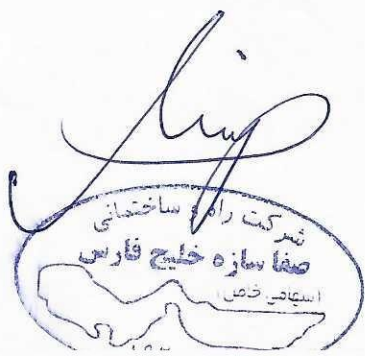 شرکت راه و ساختمانی
صفا سازه خلیج فارس
(سهامی خاص)